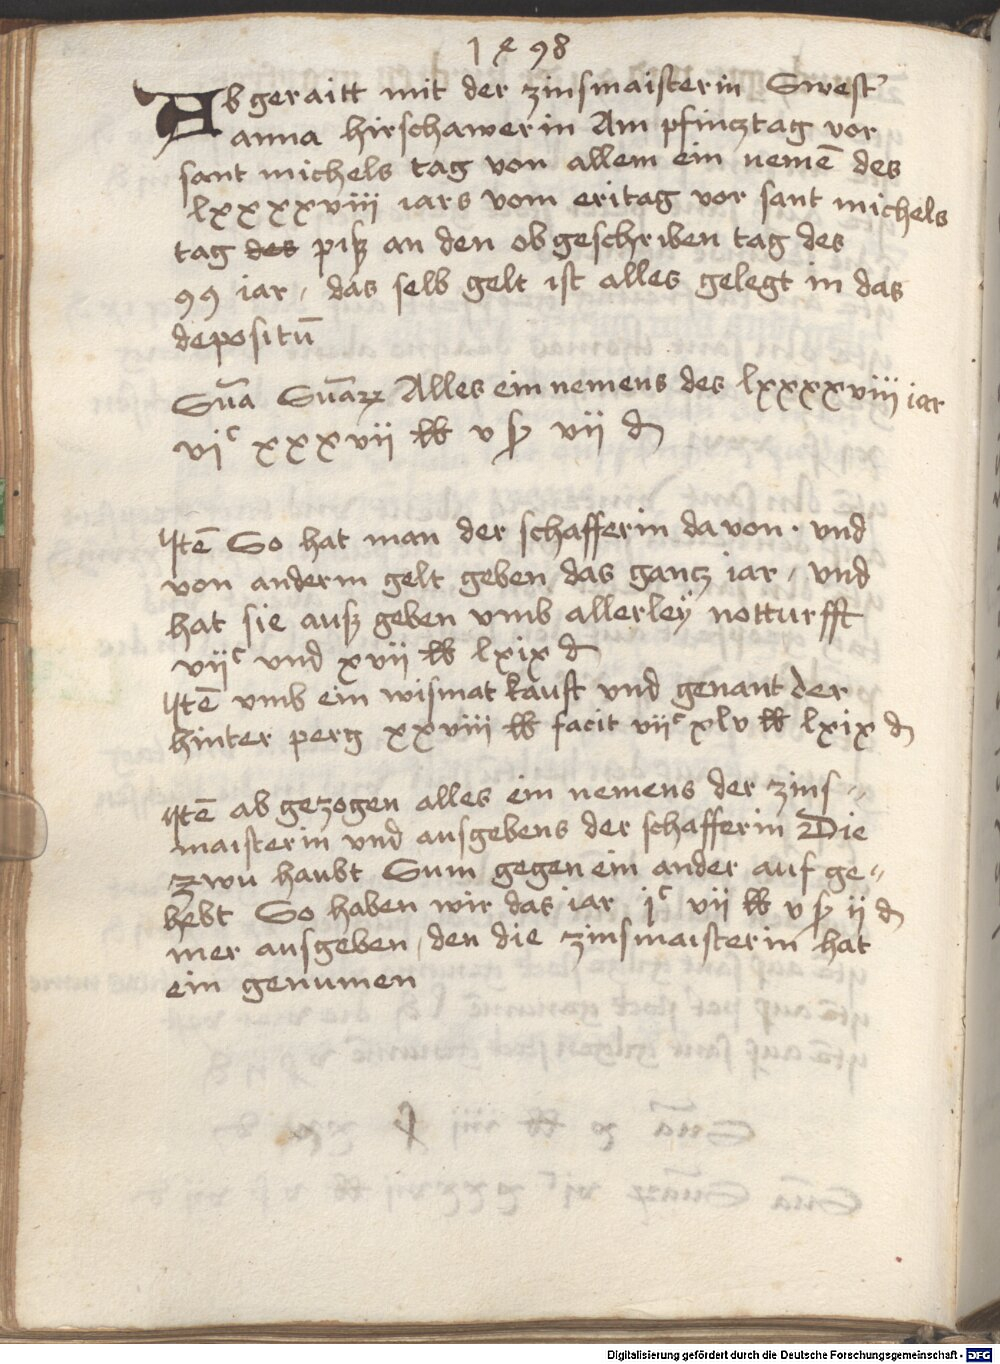 1498
Abgeraitt mit der zinsmaisterin Swest'
anna hirschawerin Am pfincztag vor
sant michels tag von allem ein nemē des
lxxxxviii iars vom eritag vor sant michels
tag des pisz an den obgeschriben tag des
99 iar / das selb gelt ist alles gelegt in das
depositū
Suā Suāꝝ Alles ein nemens des lxxxxviii iar
viᶜ xxxvii lb v ß vii d
Itē So hat man der schafferin davon · vnd
von anderm gelt geben das gancz iar / vnd
hat sie ausz geben vmb allerleÿ notturfft
viiᶜ vnd xvii lb lxix d
Itē vmb ein wismat kauft vnd genant der
hinter perg xxviii lb facit viiᶜ xlv lb lxix d
Itē ab gezogen alles ein nemens der zins //
maisterin vnd ausgebens der schafferin Die
zwu haubt Sum gegen ein ander auf ge //
hebt So haben wir das iar jᶜ vii lb v ß ii d
mer ausgeben / den die zinsmaisterin hat
ein genumen
Digitalisierung gefördert durch die Deutsche Forschungsgemeinschaft - DFG